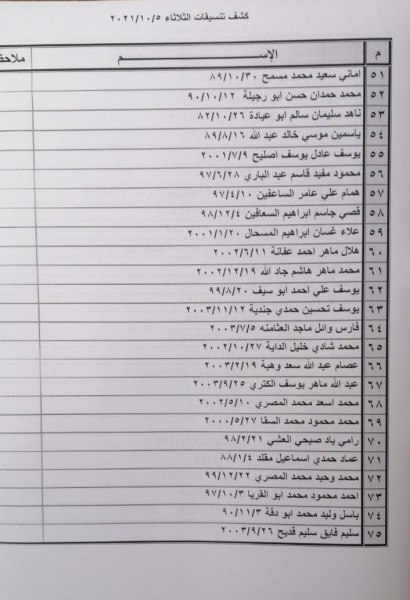 كشف تنسيقات الثلاثاء ٢٠٢١/١٠/٥
م الإســـم ملاحظ
٥١ اماني سعيد محمد مسمح ٨٩/١٠/٣٠
٥٢ محمد حمدان حسن ابو رجيلة ٩٠/١٠/١٢
٥٣ ناهد سليمان سالم ابو عيادة ٨٢/١٠/٢٦
٥٤ ياسمين موسي خالد عبد الله ٨٩/٨/١٦
٥٥ يوسف عادل يوسف اصليح ٢٠٠١/٧/٩
٥٦ محمود مفيد قاسم عبد الباري ٩٧/٦/٢٨
٥٧ همام علي عامر الساعفين ٩٧/٤/١٠
٥٨ قصي جاسم ابراهيم السعافين ٩٨/١٢/٤
٥٩ علاء غسان ابراهيم المسحال ٢٠٠١/١/٢٠
٦٠ هلال ماهر احمد عفانة ٢٠٠٢/٦/١١
٦١ محمد ماهر هاشم جاد الله ٢٠٠٢/١٢/١٩
٦٢ يوسف علي احمد ابو سيف ٩٩/٨/٢٠
٦٣ يوسف تحسين حمدي جندية ٢٠٠٣/١١/١٢
٦٤ فارس وائل ماجد العثامنه ٢٠٠٣/٧/٥
٦٥ محمد شادي خليل الداية ٢٠٠٢/١٠/٢٧
٦٦ عصام عبد الله سعد وهبة ٢٠٠٣/٢/١٩
٦٧ عبد الله ماهر يوسف الكتري ٢٠٠٣/٩/٢٥
٦٨ محمد اسعد محمد المصري ٢٠٠٢/٥/١٠
٦٩ محمد محمود محمد السقا ٢٠٠٠/٥/٢٧
٧٠ رامي ياد صبحي العشي ٩٨/٢/٢١
٧١ عماد حمدي اسماعيل مقلد ٨٨/١/٤
٧٢ محمد وحيد محمد المصري ٩٩/١٢/٢٢
٧٣ احمد محمود محمد ابو القريا ٩٧/١٠/٣
٧٤ باسل وليد محمد ابو دقة ٩٠/١١/٣
٧٥ سليم فايق سليم قديح ٢٠٠٣/٩/٢٦